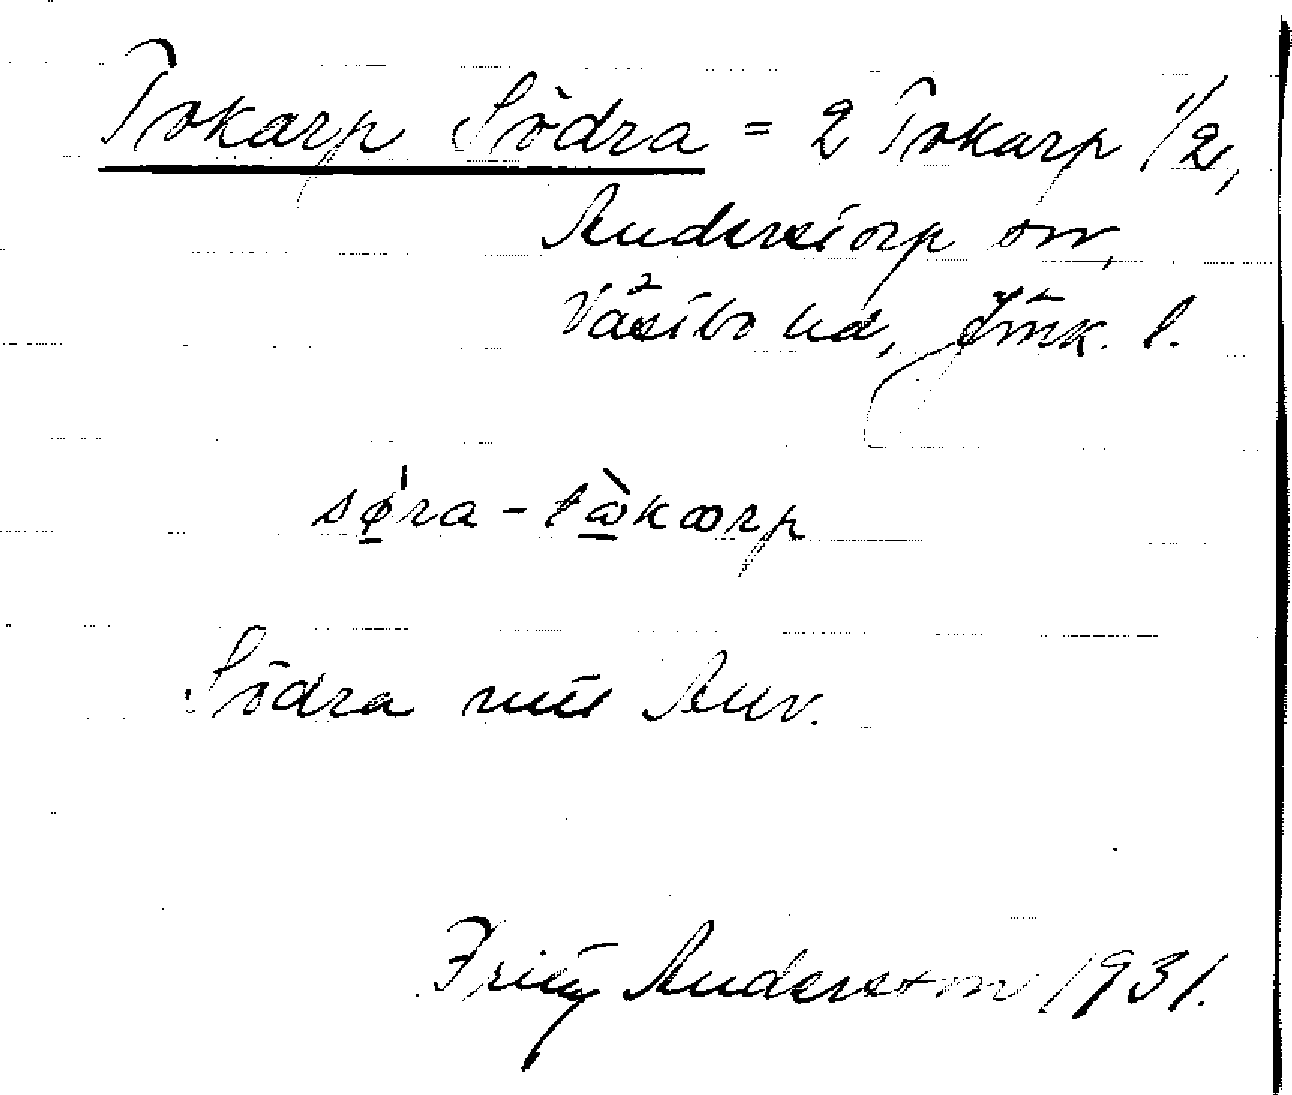 Tokarp Södra = 2 Tokarp 1/2,
Anderstorp sn,
Västbo hd, Jönk. l.
sǿra-tàkarp
Södra mest Anv.
Fritz Anderson 1931.